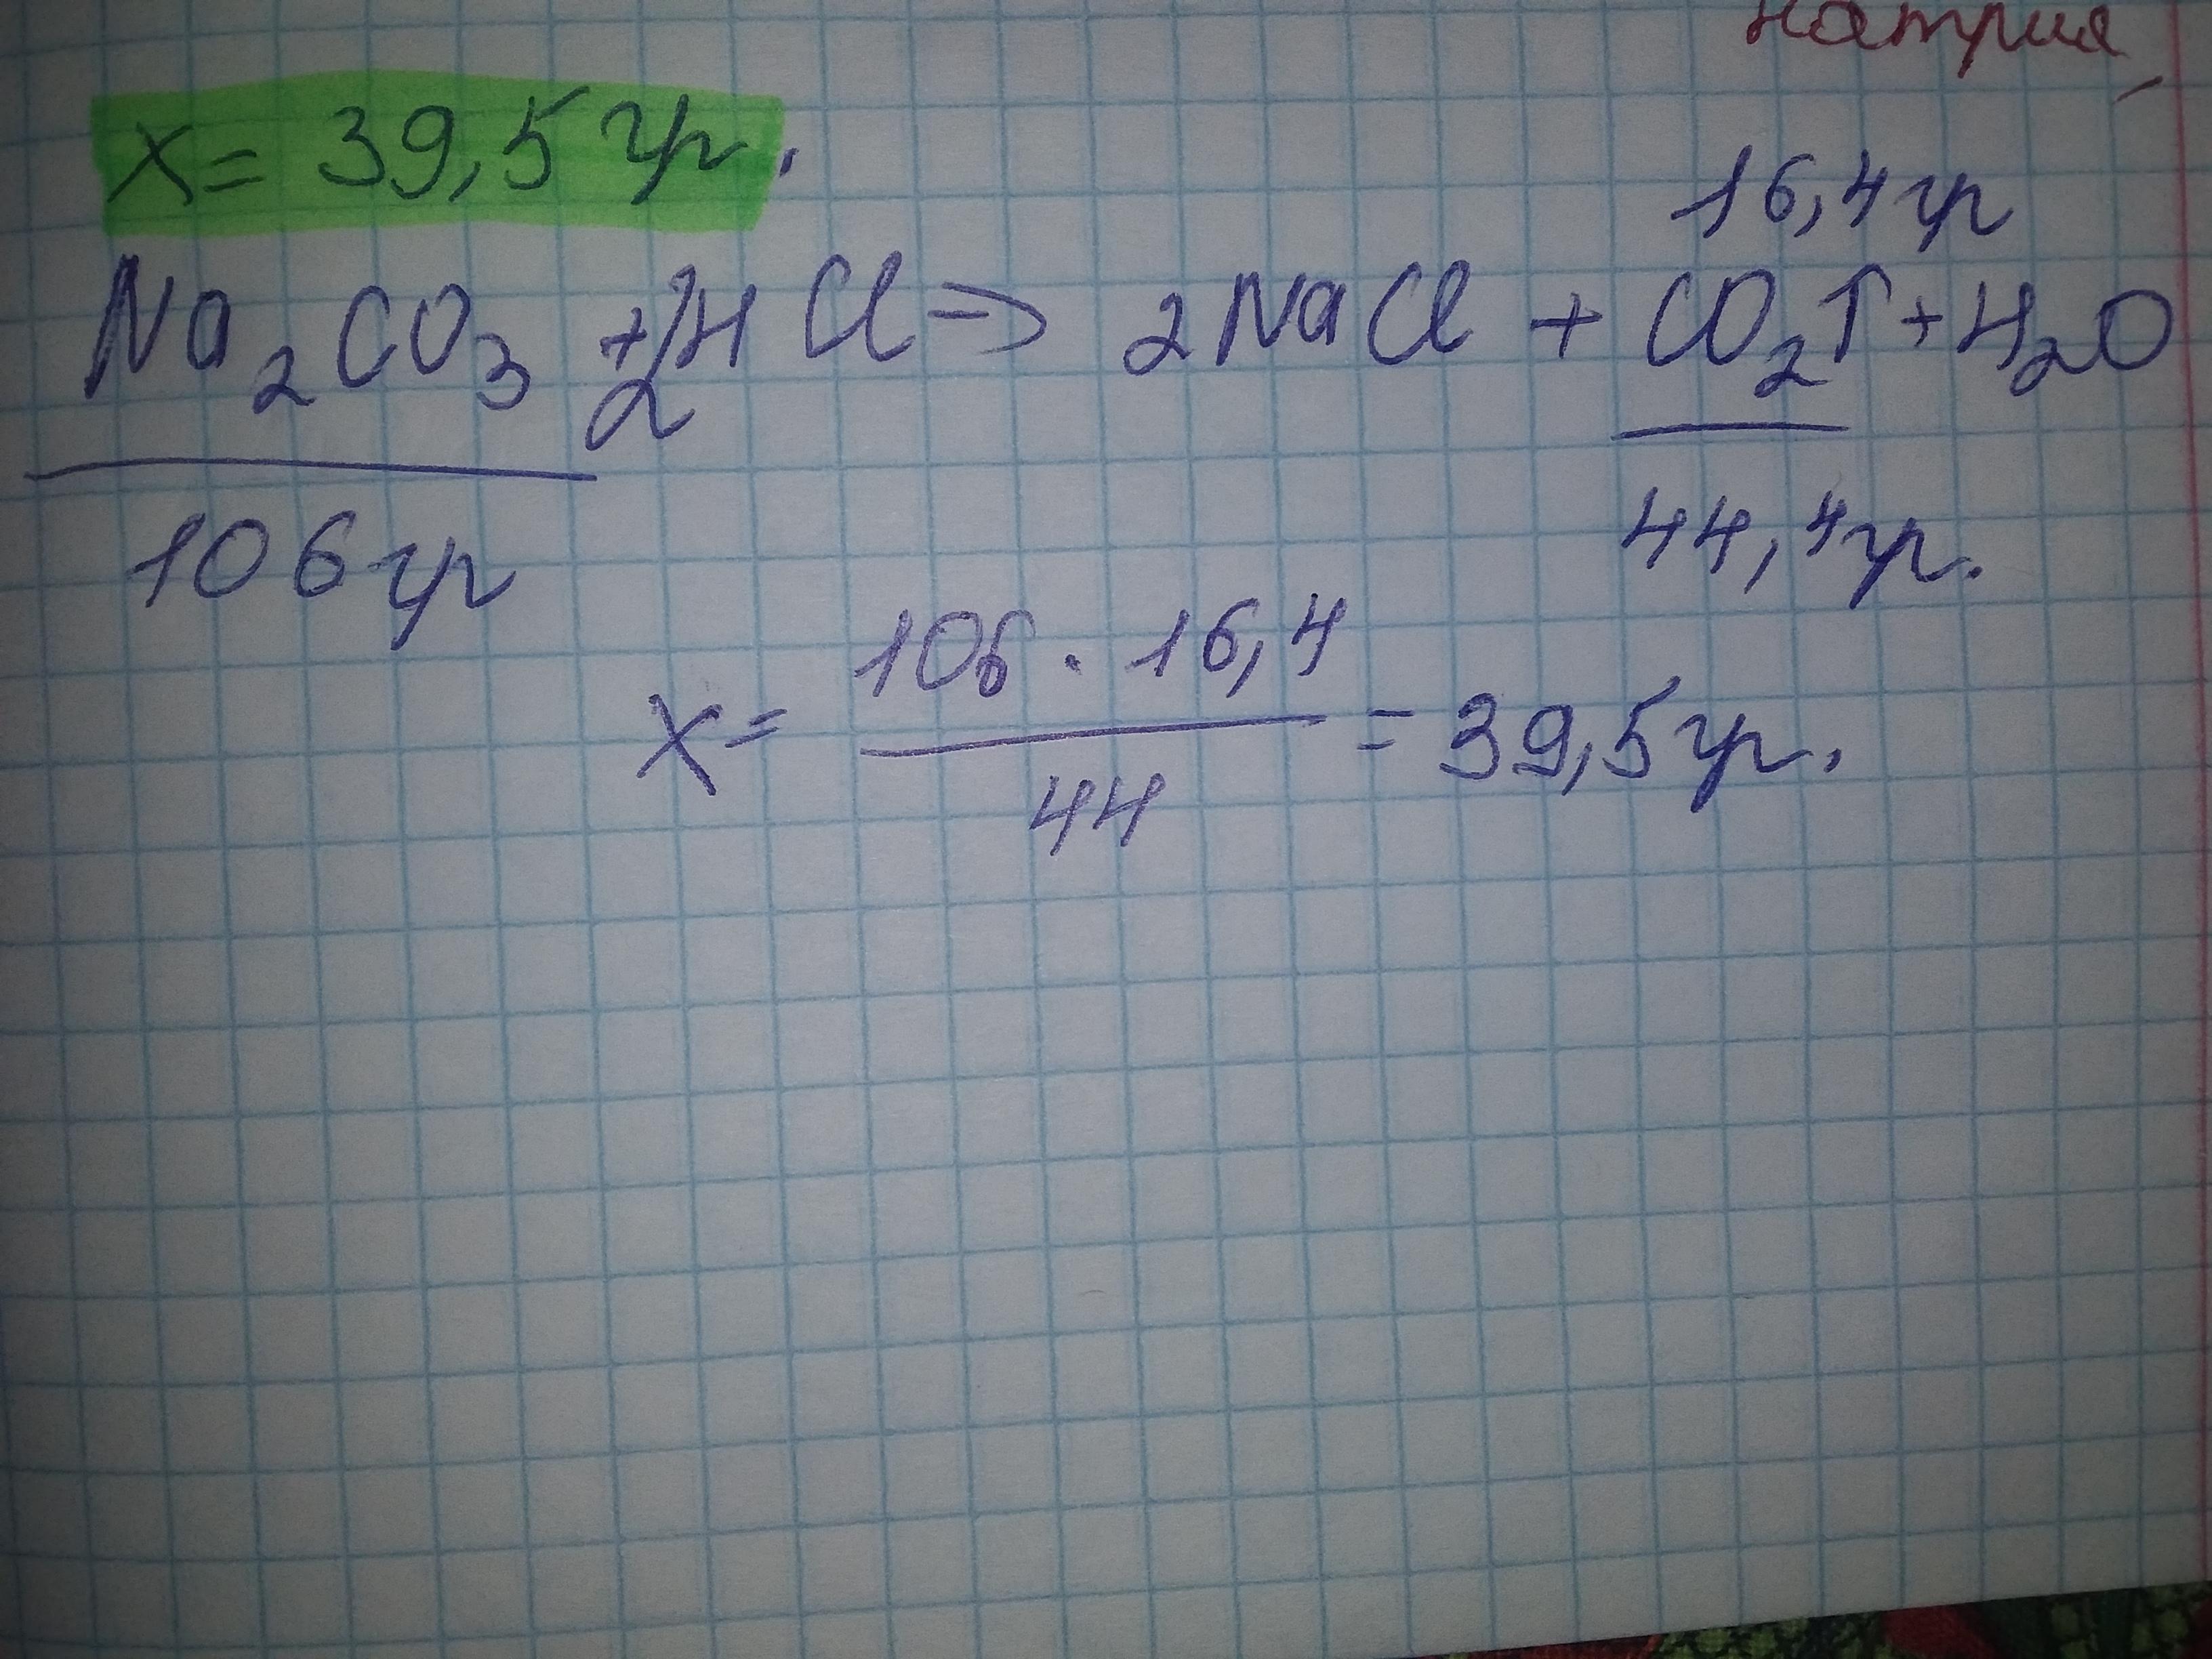 натрия,
x = 39,5 гр.
16,4 гр
Na₂CO₃ + 2HCl → 2NaCl + CO₂↑ + H₂O
106 гр
44,4 гр.
x = 106 · 16,4 / 44 = 39,5 гр.